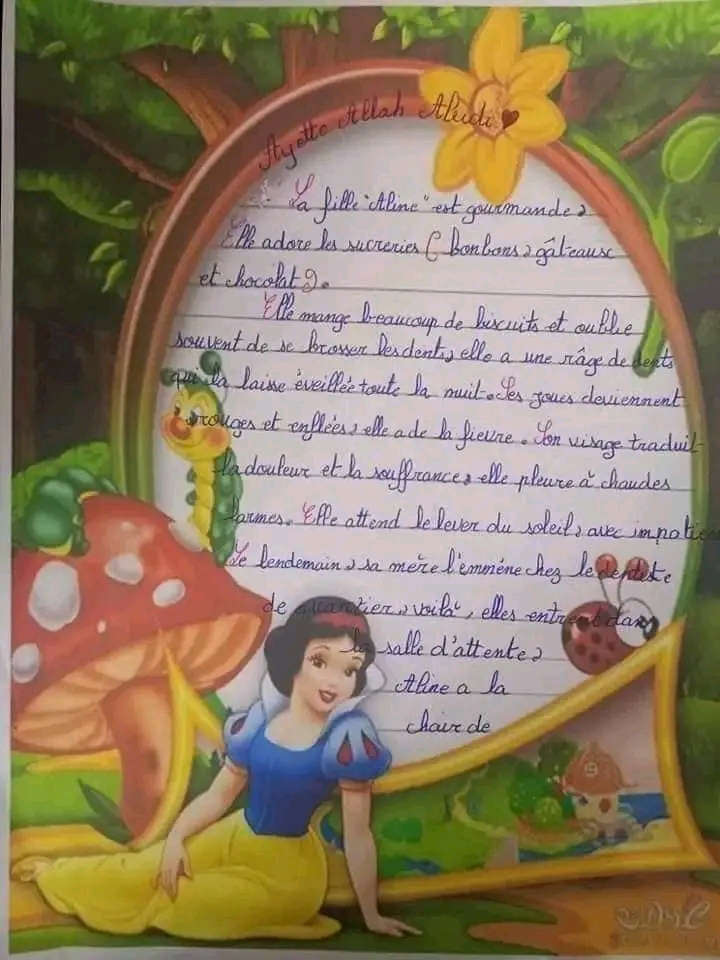 Ayette Allah Abidi
La fille "Aline" est gourmande,
Elle adore les sucreries ( bonbons, gâteaux
et chocolat).
Elle mange beaucoup de biscuits et oublie
souvent de se brosser les dents, elle a une râge de dents
qui la laisse éveillée toute la nuit. Ses joues deviennent
rouges et enflées, elle a de la fievre. Son visage traduit
la douleur et la souffrance, elle pleure à chaudes
larmes. Elle attend le lever du soleil, avec impatien
Le lendemain, sa mère l'emméne chez le dentiste
de quartier, voilà, elles entrent dans
la salle d'attente,
Aline a la
chair de